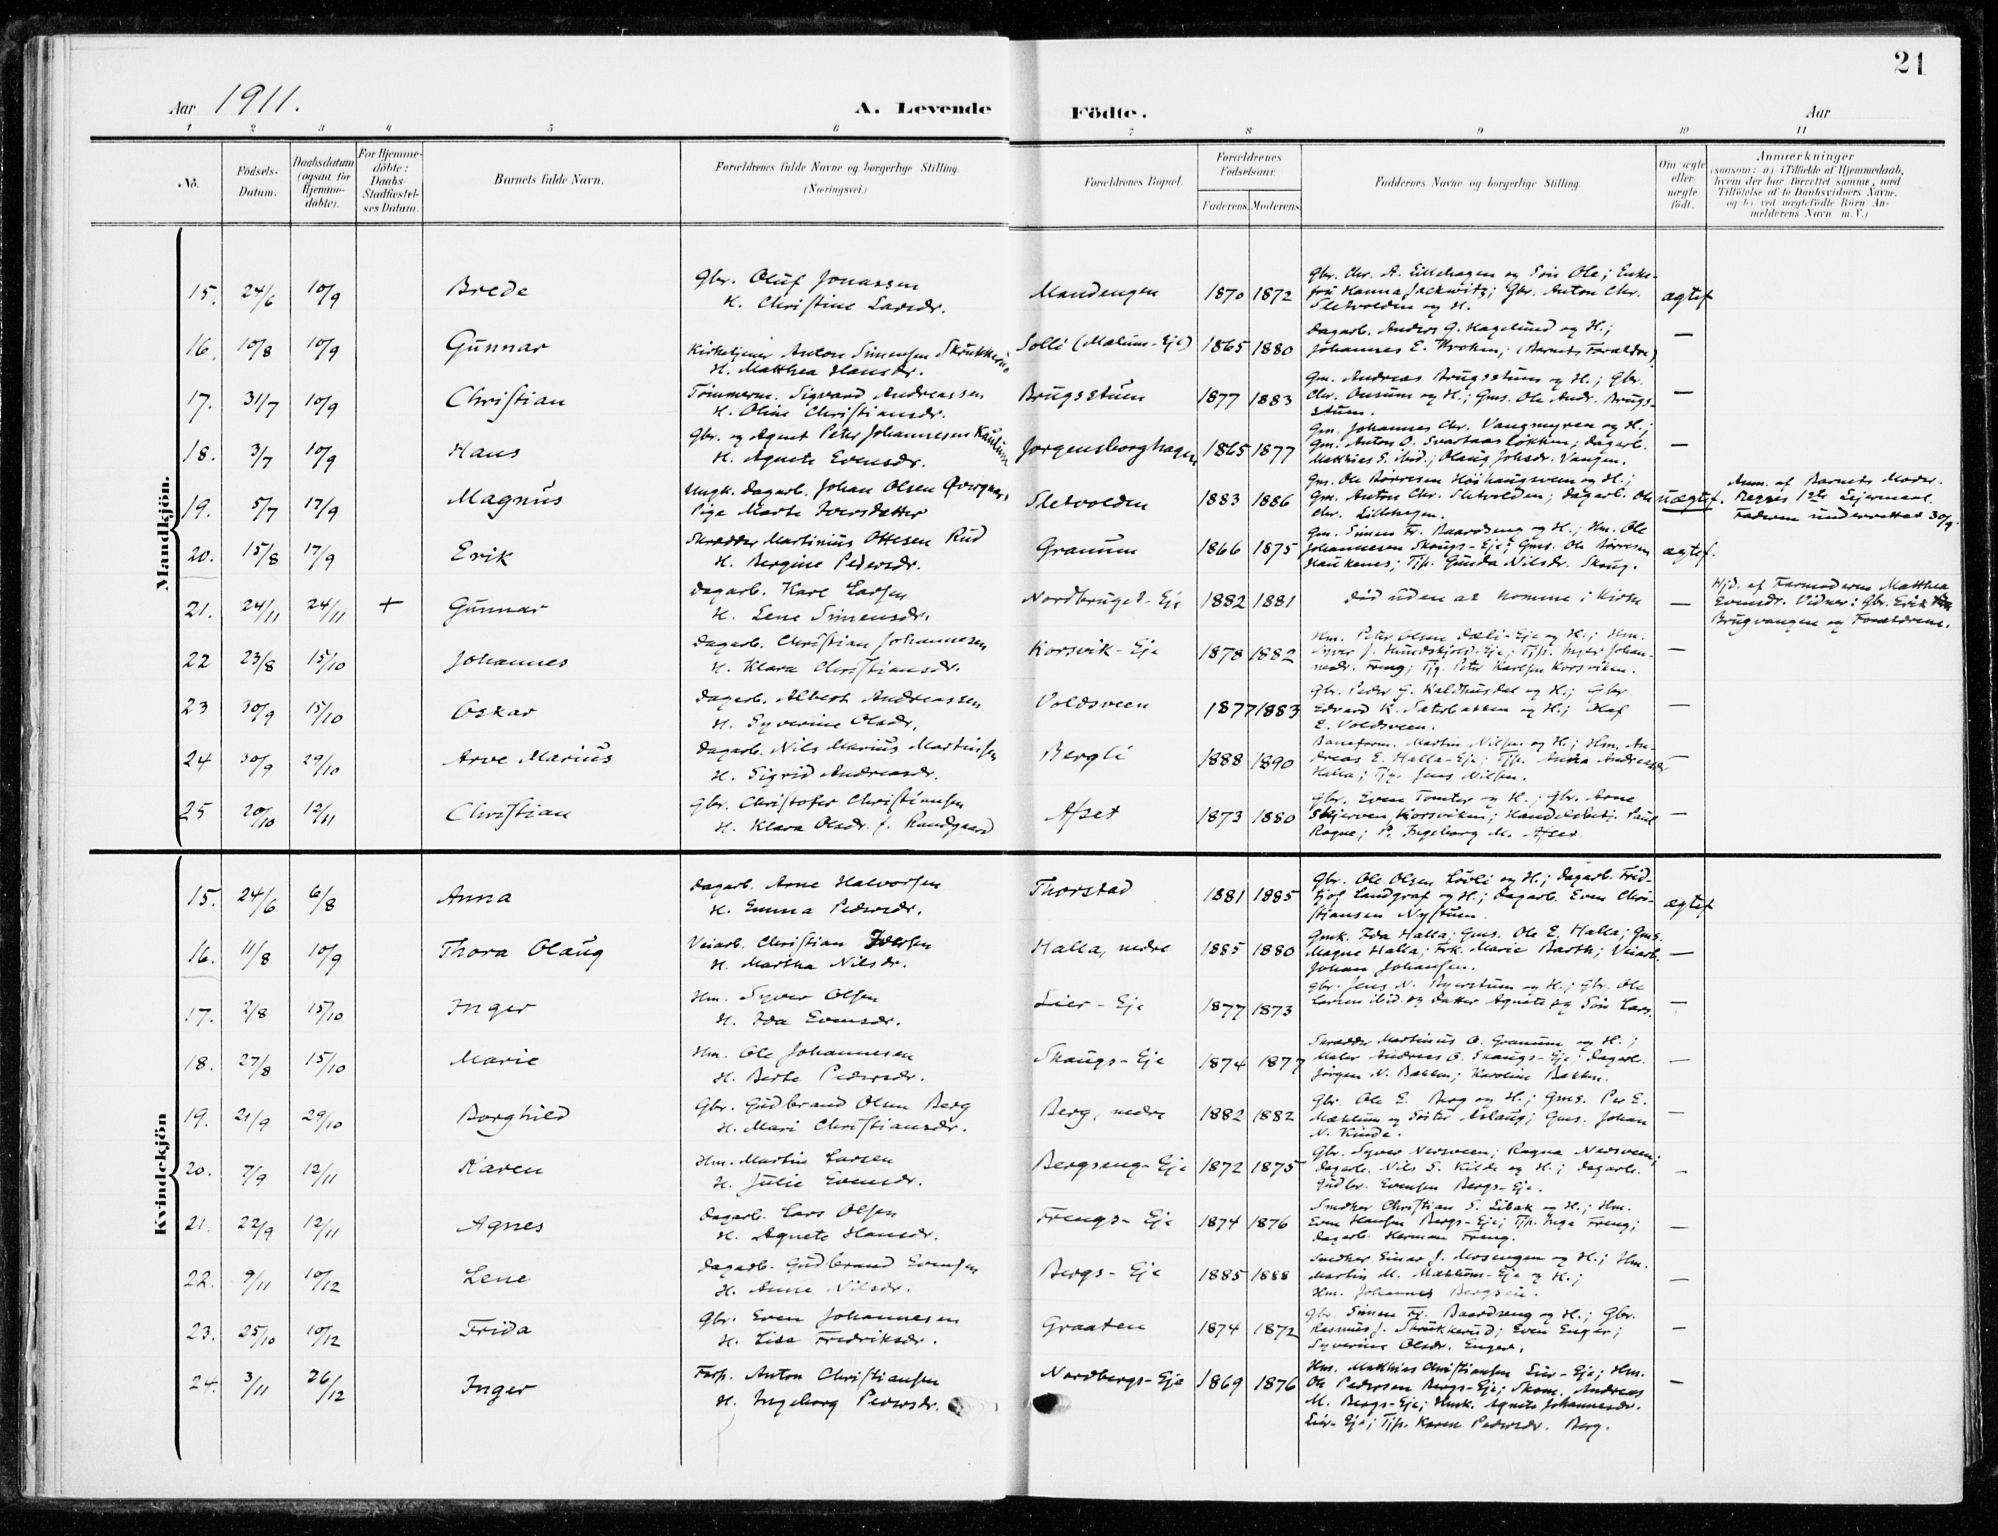 21
Aar 1911. A. Levende Födte. Aar
1 2 3 4 5 6 7 8 9 10 11
No. Födsels-Datum. Daabsdatum (ogsaa for Hjemme-döbte). For Hjemme-döbte: Daabs-Stadfæstel-ses Datum. Barnets fulde Navn. Forældrenes fulde Navne og borgerlige Stilling. (Næringsvei.) Forældrenes Bopæl. Forældrenes Födselsaar. Faderens. Moderens. Faddernes Navne og borgerlige Stilling. Om ægte eller uægte födt. Anmærkninger (saasom: a) i Tilfælde af Hjemmedaab, hvem der har forrettet samme, med Tilföielse af to Daabsvidners Navne, og b) ved uægtefödte Börn An-melderens Navn m.V.)
Mandkjön.
15. 24/6 10/9 Brede Gbr. Oluf Jonassen H. Christine Larsdr. Mandengen 1870 1872 Gbr. Chr. A. Lillehagen og Sön Ole; Enke-fru Hanna Jackwitz; Gbr. Anton Chr. Sletvolden og H. ægtef
16. 10/8 10/9 Gunnar Kirketjener Anton Simensen Skrukkerud H. Matthea Hansdr. Solli (Mælum-Eje) 1865 1880 Dagarb. Anders G. Hagelund og H.; Johannes E. Kroken; (Barnets Forældre) —
17. 31/7 10/9 Christian Tömmerm. Sigvard Andreassen H. Oline Christiansdr. Brugsstuen 1877 1883 Gm. Andreas Brugsstuen og H.; Gbr. Chr. Onsum og H.; Gms. Ole Andr. Brugs-stuen. —
18. 3/7 10/9 Hans Gbr. og Agent Peter Johannesen H. Agnete Evensdr. Jørgensborghagen 1865 1877 Gm. Johannes Chr. Vangmyren og H.; Gm. Anton O. Svartaasløkken; Dagarb. Matthias S. ibid.; Olaug Johsdr. Vangen. —
19. 5/7 17/9 Magnus Ungk. Dagarb. Johan Olsen Pige Marte Iversdatter Sletvolden 1883 1886 Gm. Ole Børresen Høihaugsveen og H.; Gm. Anton Chr. Sletvolden; Dagarb. Ole Chr. Lillehagen. uægtef. Anm. af Barnets Moder. Begges 1ste Leiermaal. Faderen underrettet 30/9.
20. 15/8 17/9 Erik Skrædder Martinius Ottesen Rud H. Bergine Pedersdr. Granum 1866 1875 Gm. Simen Fr. Baardseng og H.; Hm. Ole Johannesen Skougs-Eje; Gms. Ole Børresen Haukenes; Tjp. Gunda Nilsdr. Skoug. ægtef.
21. 24/11 24/11 + Gunnar Dagarb. Karl Larsen H. Lene Simensdr. Nordbruget-Eje 1882 1881 Död uden at komme i Kirke — Hjd. af Farmoderen Matthea Evensdr. Vidner: Gbr. Erik Brugvangen og Forældrene.
22 23/8 15/10 Johannes Dagarb. Christian Johannesen H. Klara Christiansdr. Korsvik-Eje 1878 1882 Hm. Peter Olsen Dæli-Eje og H.; Hm. Syver J. Hundskjold-Eje; Tjp. Inger Johan-nesdr. Freng; Tjg. Peter Karlsen Korsviken. —
23 30/9 15/10 Oskar Dagarb. Albert Andreassen H. Syverine Olsdr. Voldsveen 1877 1883 Gbr. Peder G. Kaldhusdal og H.; Gbr. Edvard K. Sæterbakken og H.; Olaf E. Voldsveen. —
24 30/9 29/10 Arve Marius Dagarb. Nils Marius Martinsen H. Sigrid Andreasdr. Bergli 1888 1890 Baneform. Martin Nilsen og H.; Hm. An-dreas E. Halla-Eje; Tjp. Andrea Andreasdr Halla; Tjg. Jens Nilsen. —
25 20/10 12/11 Christian Gbr. Christofer Christiansen H. Klara Olsdr. f. Rundgaard Afset 1873 1880 Gbr. Even Tomter og H.; Gbr. Arne Skjerven, Korsviken; Handelsbetj. Paul Rogne; P. Ingeborg M. Afset. —
Kvindekjön
15. 24/6 6/8 Anna Dagarb. Arne Halvorsen H. Emma Pedersdr. Thorstad 1881 1885 Gbr. Ole Olsen Løvli og H.; Dagarb. Frid-tjof Landgraf og H.; Dagarb. Even Chri-stiansen Nystuen. ægtef
16. 11/8 10/9 Thora Olaug Veiarb. Christian Iversen H. Martha Nilsdr. Halla, nedre 1885 1880 Gmk. Ida Halla; Gms. Ole E. Halla; Gms. Magne Halla; Frk. Marie Barth; Veiarb. Johan Johansen. —
17. 2/8 15/10 Inger Hm. Syver Olsen H. Ida Evensdr. Lier-Eje 1877 1873 Gbr. Jens N. Byerstuen og H.; Gbr. Ole Larsen ibid. og Datter Agnete og Sön Lars. —
18. 27/8 15/10 Marie Hm. Ole Johannesen H. Berte Pedersdr. Skougs-Eje 1874 1877 Skrædder Martinius O. Granum og H.; Maler Andreas O. Skougs-Eje; Dagarb. Jörgen N. Bakken; Karoline Bakken. —
19. 21/9 29/10 Borghild Gbr. Gudbrand Olsen Berg H. Mari Christiansdr. Berg, nedre 1882 1882 Gbr. Ole E. Berg og H.; Gms. Per E. Mæhlum og Söster Aslaug; Gms. Johan N. Kinde. —
20. 7/9 12/11 Karen Hm. Martin Larsen H. Julie Evensdr. Bergseng-Eje 1872 1875 Gbr. Syver Nersveen; Ragna Nersveen; Dagarb. Nils S. Kilde og H.; Dagarb. Gudbr. Evensen Bergs-Eje. —
21. 22/9 12/11 Agnes Dagarb. Lars Olsen H. Agnete Hansdr. Frengs-Eje 1874 1876 Snedker Christian S. Libak og H.; Hm. Even Hansen Bergs-Eje; Tjp. Inga Freng; Dagarb. Herman Freng. —
22. 9/11 10/12 Lene Dagarb. Gudbrand Evensen H. Anne Nilsdr. Bergs-Eje 1885 1888 Snedker Einar J. Mosengen og H.; Hm. Martin M. Mæhlum-Eje og H.; Hm. Johannes Bergseie. —
23. 25/10 10/12 Frida Gbr. Even Johannesen H. Lisa Fredriksdr. Graaten 1874 1872 Gbr. Simen Fr. Baardseng og H.; Gbr. Rasmus J. Skrukkerud; Even Enger; Syverine Olsdr. Enger. —
24. 3/11 26/12 Inger Forp. Anton Christiansen H. Ingeborg Pedersdr. Nordbergs-Eje 1869 1876 Hm. Matthias Christiansen Lier-Eje; Hm. Ole Pedersen Bergs-Eje; Skom. Andreas M. Bergs-Eje; Husk. Agnete Johannesdr. Lier-Eje; Tjp. Karen Pedersdr. Berg. —